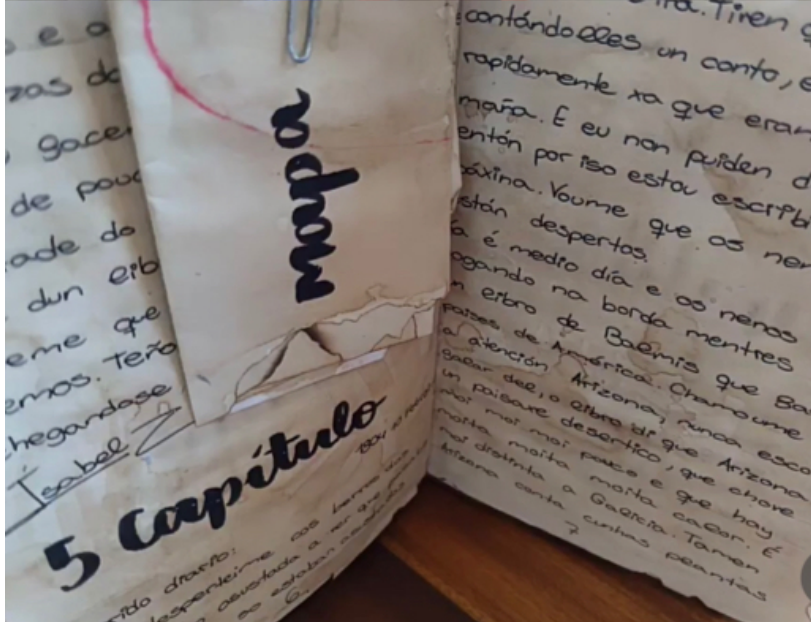 e a
zas do
gacer
de pouc
ade do
dun eib
eme que
emos. Teño
chegandose
Isabel Z
mapa
5 Capítulo
diario:
espenteime cos berros dus
asustada a ver que
so estaban asustados
6
Tiren
contándoees un conto, e
rapidamente xa que eran
maña. E eu non puiden d
entón por iso estou escrib
páxina. Voume que os nen
están despertos.
a é medio día e os nenos
ogando na borda mentres
n eibro de Baemis que Ba
países de América. Chamoume
a atención Arizona, nunca esco
Baear dee, o eibro di que Arizona
un paisaxe desertico, que chove
moi moi moi pouco e que hay
moita moita moita caeor. É
moi distinta a Gaeicia. Tamen
Arizona conta cunhas peantas
7